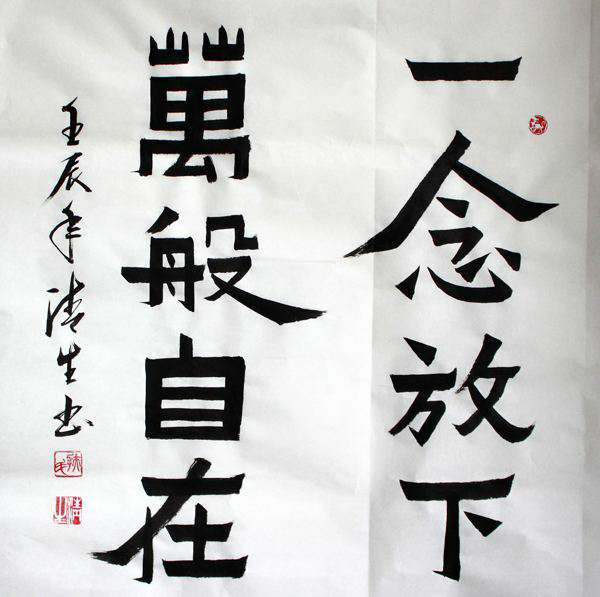 一念放下
萬般自在
壬辰年清生书